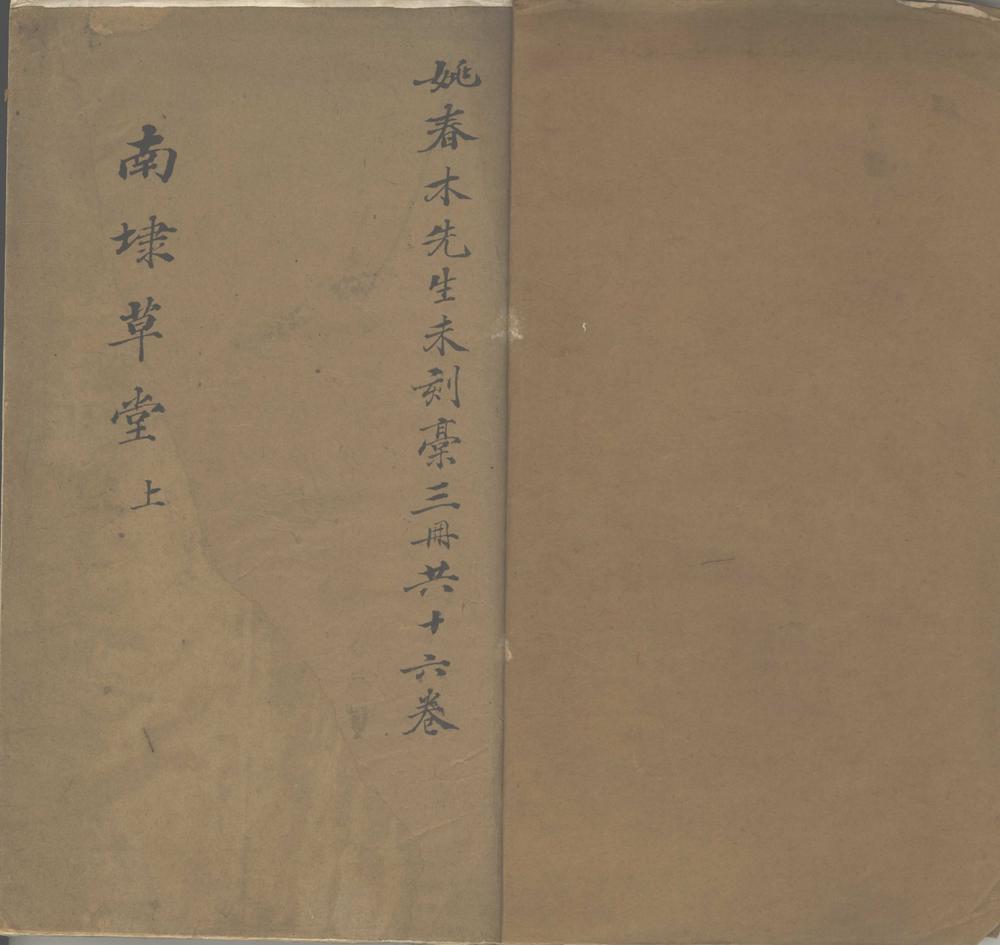 姚春木先生未刻稾三冊共十六卷
南埭草堂上